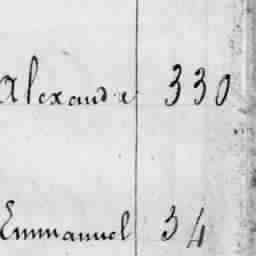 Alexandre 330
Emmanuel 34